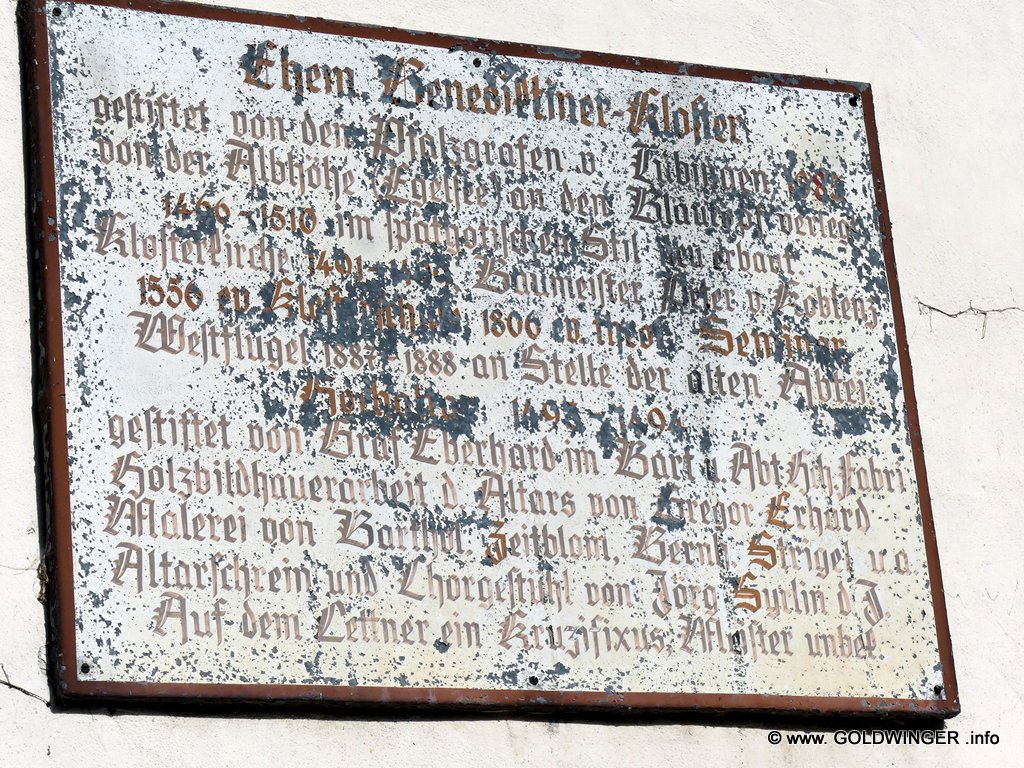 Ehem. Benediktiner-Kloster
gestiftet von den Pfalzgrafen v. Tübingen 1085
von der Albhöhe (Egelsee) an den Blautopf verlegt.
1466-1510 im spätgotischen Stil neu erbaut.
Klosterkirche 1491-1499 Baumeister Peter v. Koblenz
1556 ev. Klosterschule 1806 ev. theol. Seminar
Westflügel 1887-1888 an Stelle der alten Abtei.
Hochaltar: 1493-1494
gestiftet von Graf Eberhard im Bart u. Abt Hch. Fabri
Holzbildhauerarbeit d. Altars von Gregor Erhard
Malerei von Barthol. Zeitblom, Bernh. Strigel u.a.
Altarschrein und Chorgestühl von Jörg Syrlin d. J.
Auf dem Lettner ein Kruzifixus. Meister unbek.
© www. GOLDWINGER .info